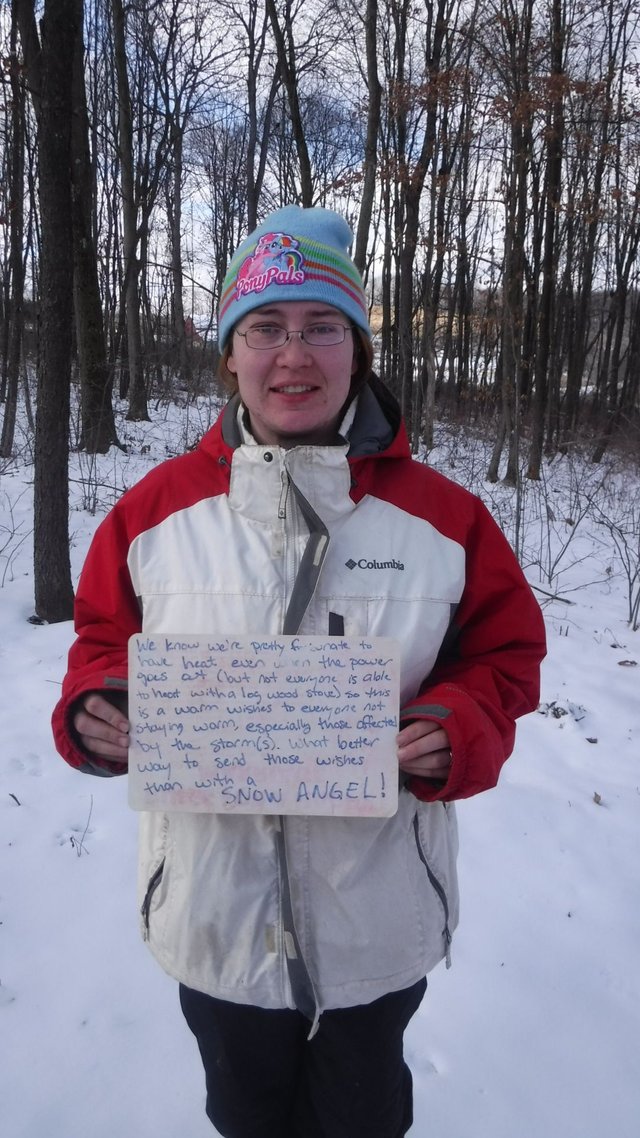 PonyPals
Columbia
We know we're pretty fortunate to
have heat even when the power
goes out (but not everyone is able
to heat with a log wood stove) so this
is a warm wishes to everyone not
staying warm, especially those affected
by the storm(s). What better
way to send those wishes
than with a
SNOW ANGEL!